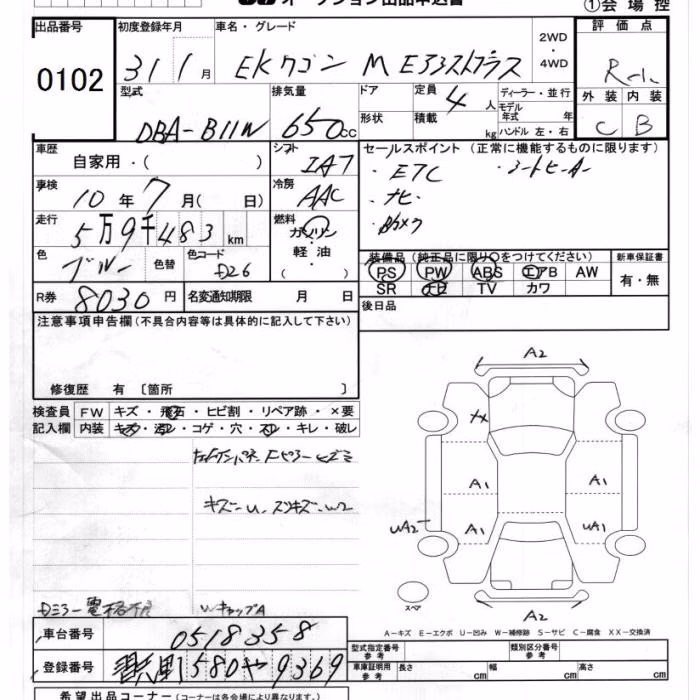 オークション出品申込書
①会場控
出品番号 初度登録年月 車名・グレード 評価点
0102 31 1月 EKワゴン M Eアシストプラス 2WD・4WD R-1
外装 内装
C B
型式 排気量 ドア 定員 4人 ディーラー・並行
DBA-B11W 650cc 形状 積載 kg モデル年式 年
ハンドル 左・右
車歴 自家用・( ) シフト IA7 セールスポイント(正常に機能するものに限ります)
・ETC ・シートヒーター
・ナビ
・Bカメラ
車検 10年7月(日) 冷房 AAC
走行 5万9千483km 燃料 ガソリン・軽油・( )
色 ブルー 色替 色コード D26
装備品(純正品に限り○をつけてください) 新車保証書
PS PW ABS エアB AW 有・無
SR ナビ TV カワ
R券 8030円 名変通知期限 月 日 後日品
注意事項申告欄(不具合内容等は具体的に記入して下さい)
修復歴 有 〔箇所 〕
検査員記入欄 FW キズ・飛石・ヒビ割・リペア跡・×要
内装 キズ・汚レ・コゲ・穴・スレ・キレ・破レ
キズーU、スリキズーW2
Dミラー電格不良 WキャップA
A2
A1 A1
UA2 A1 UA1
スペア
A2
A-キズ E-エクボ U-凹み W-補修跡 S-サビ C-腐食 XX-交換済
車台番号 0518358
型式指定番号 類別区分番号
登録番号 580 や 9369
車庫証明用参考 長さ cm 幅 cm 高さ cm
希望出品コーナー(コーナーは各会場により異なります。)